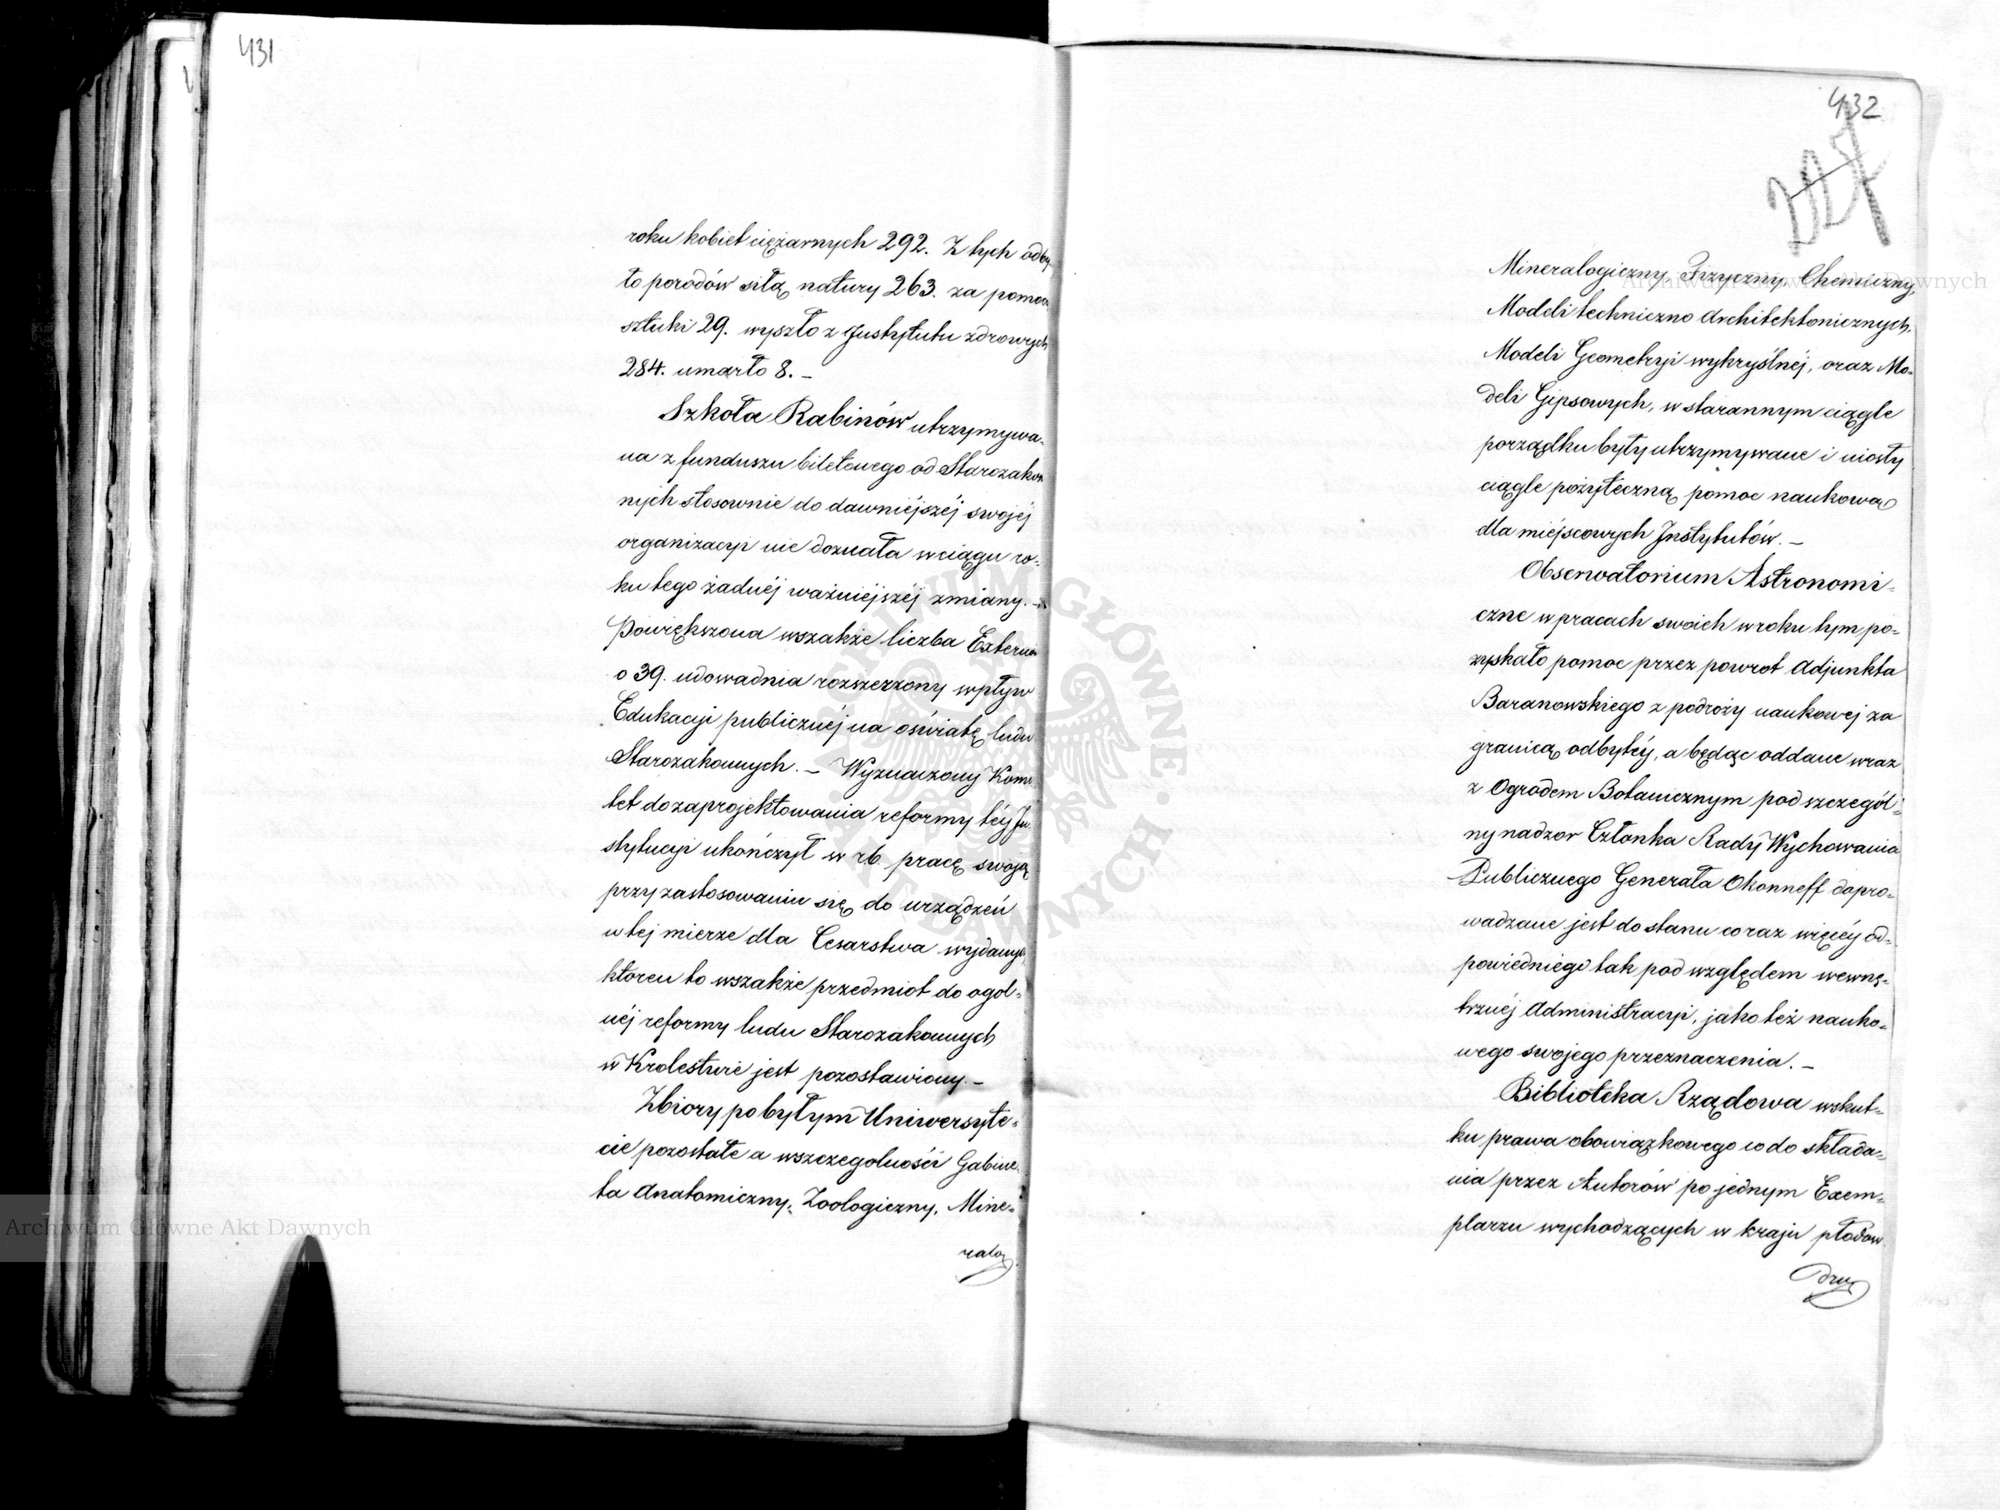 431
roku kobiet ciężarnych 292. Z tych odby-
ło porodów siłą natury 263. za pomocą
sztuki 29. wyszło z Instytutu zdrowych
284. umarło 8. –
Szkoła Rabinów utrzymywa-
na z funduszu biletowego od Starozakon
nych stosownie do dawniéjszéj swojéj
organizacyi nie doznała wciągu ro-
ku tego żadnéj ważniéjszéj zmiany. –
Powiększona wszakże liczba Extern
o 39. udowadnia rozszerzony wpływ
Edukacyi publicznéj na oświatę ludu
Starozakonnych. – Wyznaczony Komi
tet do zaprojektowania reformy téj In
stytucyi ukończył w r.b. pracę swoją
przy zastosowaniu się do urządzeń
w tej mierze dla Cesarstwa wydanych,
któren to wszakże przedmiot do ogol-
néj reformy ludu Starozakonnych
w Krolestwie jest pozostawiony. –
Zbiory po byłym Uniwersyte-
cie pozostałe a wszczegolności Gabine-
ta Anatomiczny, Zoologiczny, Mine-
ralog
432
Mineralogiczny, Fizyczny, Chemiczny,
Modeli techniczno Architektonicznych.
Modeli Geometryi wykryślnéj, oraz Mo-
deli Gipsowych, w starannym ciągle
porządku były utrzymywane i niosły
ciągle pożyteczną pomoc naukową
dla miéjscowych Instytutów. –
Obserwatorium Astronomi-
czne w pracach swoich w roku tym po-
zyskało pomoc przez powrot Adjunkta
Baranowskiego z podroży naukowej za
granicą odbytéj, a będąc oddane wraz
z Ogrodem Botanicznym pod szczegól-
ny nadzor Członka Rady Wychowania
Publicznego Generała Okonneff dopro-
wadzane jest do stanu coraz więcéj od-
powiedniego tak pod względem wewnę-
trznéj Administracyi, jako też nauko-
wego swojego przeznaczenia. –
Biblioteka Rządowa wskut-
ku prawa obowiązkowego co do składa-
nia przez Autorów po jednym Exem-
plarzu wychodzących w kraju płodow
dru
Archiwum Główne Akt Dawnych
Archiwum Główne Akt Dawnych
ARCHIWUM GŁÓWNE AKT DAWNYCH